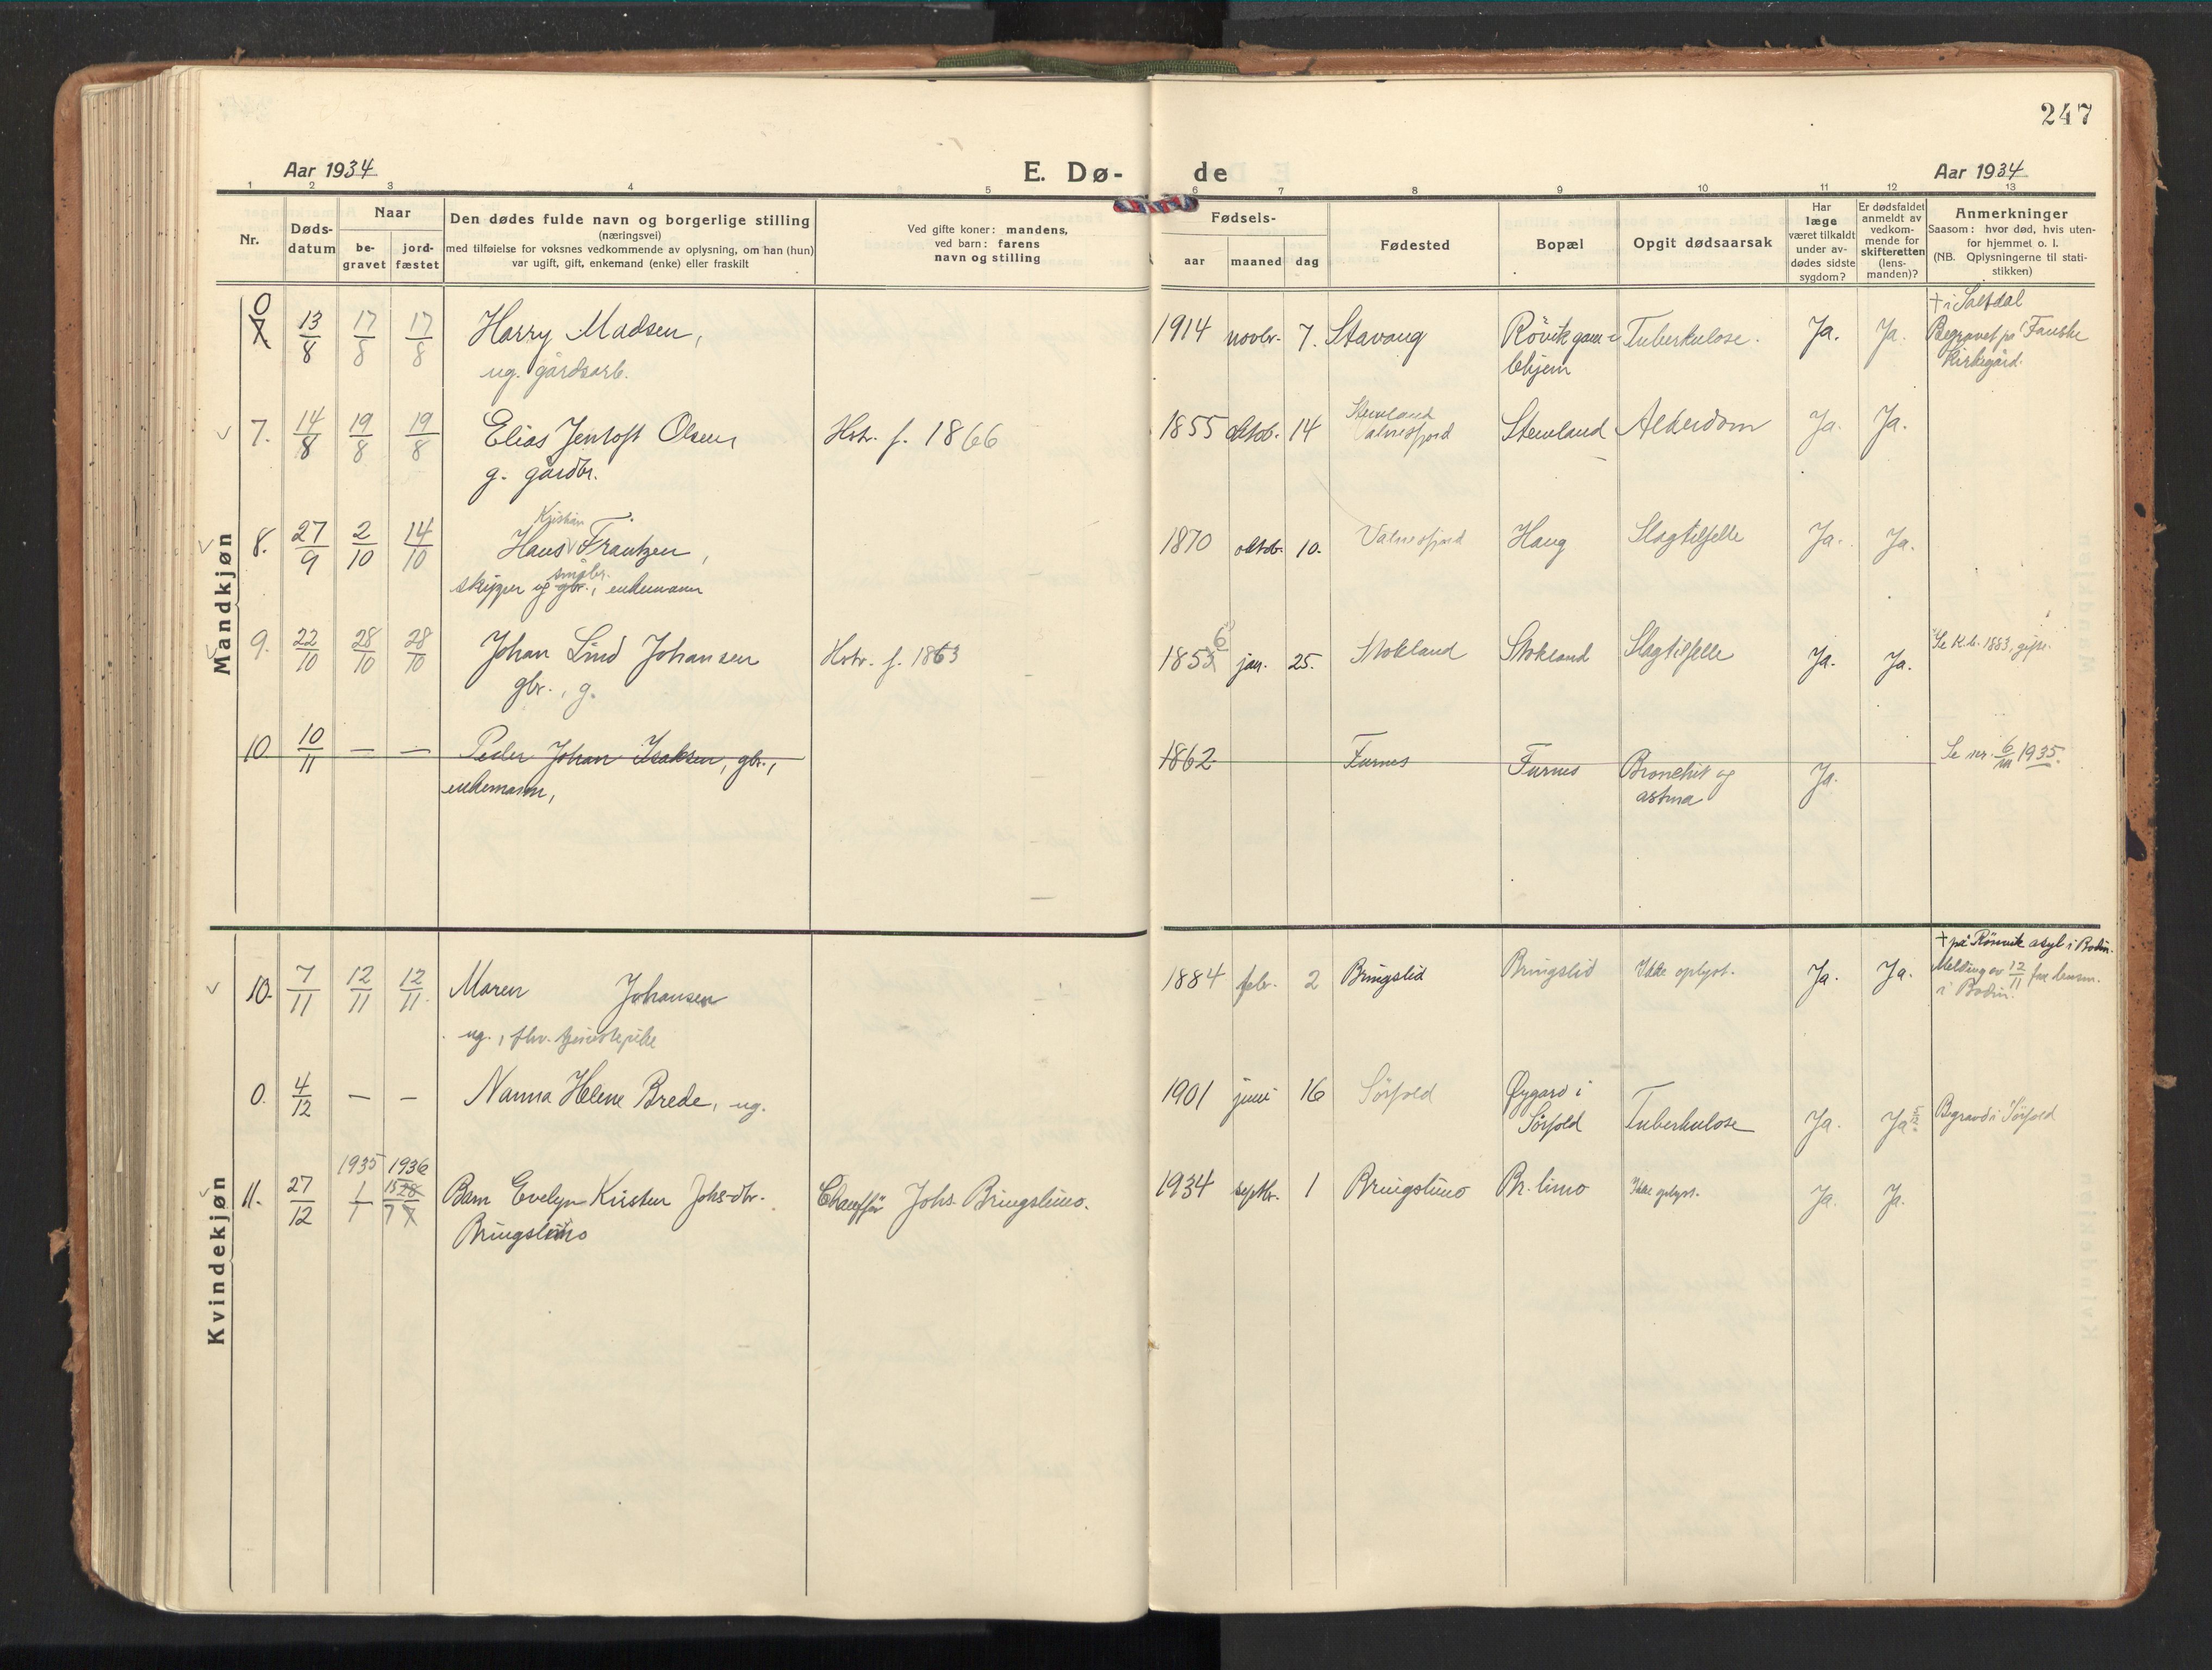 247
Aar 1934
E. Dø-
de
Aar 1934
1 2 3 4 5 6 7 8 9 10 11 12 13
Nr.
Døds-
datum
Naar
be-
gravet
jord-
fæstet
Den dødes fulde navn og borgerlige stilling
(næringsvei)
med tilføielse for voksnes vedkommende av oplysning, om han (hun)
var ugift, gift, enkemand (enke) eller fraskilt
Ved gifte koner: mandens,
ved barn: farens
navn og stilling
Fødsels-
aar maaned dag
Fødested
Bopæl
Opgit dødsaarsak
Har
læge
været tilkaldt
under av-
dødes sidste
sygdom?
Er dødsfaldet
anmeldt av
vedkom-
mende for
skifteretten
(lens-
manden)?
Anmerkninger
Saasom: hvor død, hvis uten-
for hjemmet o. l.
(NB. Oplysningerne til stati-
stikken)
Mandkjøn
0
7 13/8 17/8 17/8 Harry Madsen, 1914 novbr. 7. Stavang Røvik gam- Tuberkulose. Ja. Ja. † i Saltdal
ug. gårdsarb. lehjem Begravet på Fauske
Kirkegård.
7. 14/8 19/8 19/8 Elias Jentoft Olsen Hstr. f. 1866 1855 oktob. 14 Stemland Stemland Alderdom Ja. Ja.
g. gårdbr. Valnesfjord
Kristian
8. 27/9 2/10 14/10 Hans Frantzen, 1870 oktob. 10. Valnesfjord Haug Slagtilfelle Ja. Ja.
småbr.
skipper og gbr., enkemann
6
9. 22/10 28/10 28/10 Johan Lind Johansen Hstr. f. 1863 1855 jan. 25. Stokland Stokland Slagtilfelle Ja. Ja. Se K.b. 1883, gifte.
gbr., g.
10. 10/11 — — Peder Johan Isaksen, gbr., 1862 Furnes Furnes Bronchit og Ja. Se nr. 6/m 1935.
enkemann, astma
Kvindekjøn
10. 7/11 12/11 12/11. Maren Johansen 1884 febr. 2 Bringslid Bringslid Ikke oplyst. Ja. Ja. † på Rønvik asyl i Bodin.
ug., fhv. tjenestepike Melding av 12/11 fra lensm.
i Bodin.
0. 4/12 — — Nanna Helene Brede, ug. 1901 juni 16 Sörfold Øygard i Tuberkulose Ja. Ja Begravd i Sörfold
Sörfold
1935 1936
11. 27/12 1/1 15/7 28/7 Barn Evelyn Kirsten Johs-dtr. Chauffør Johs. Bringslimo. 1934 septbr. 1 Bringslimo Br. limo Ikke oplyst. Ja. Ja.
Bringslimo